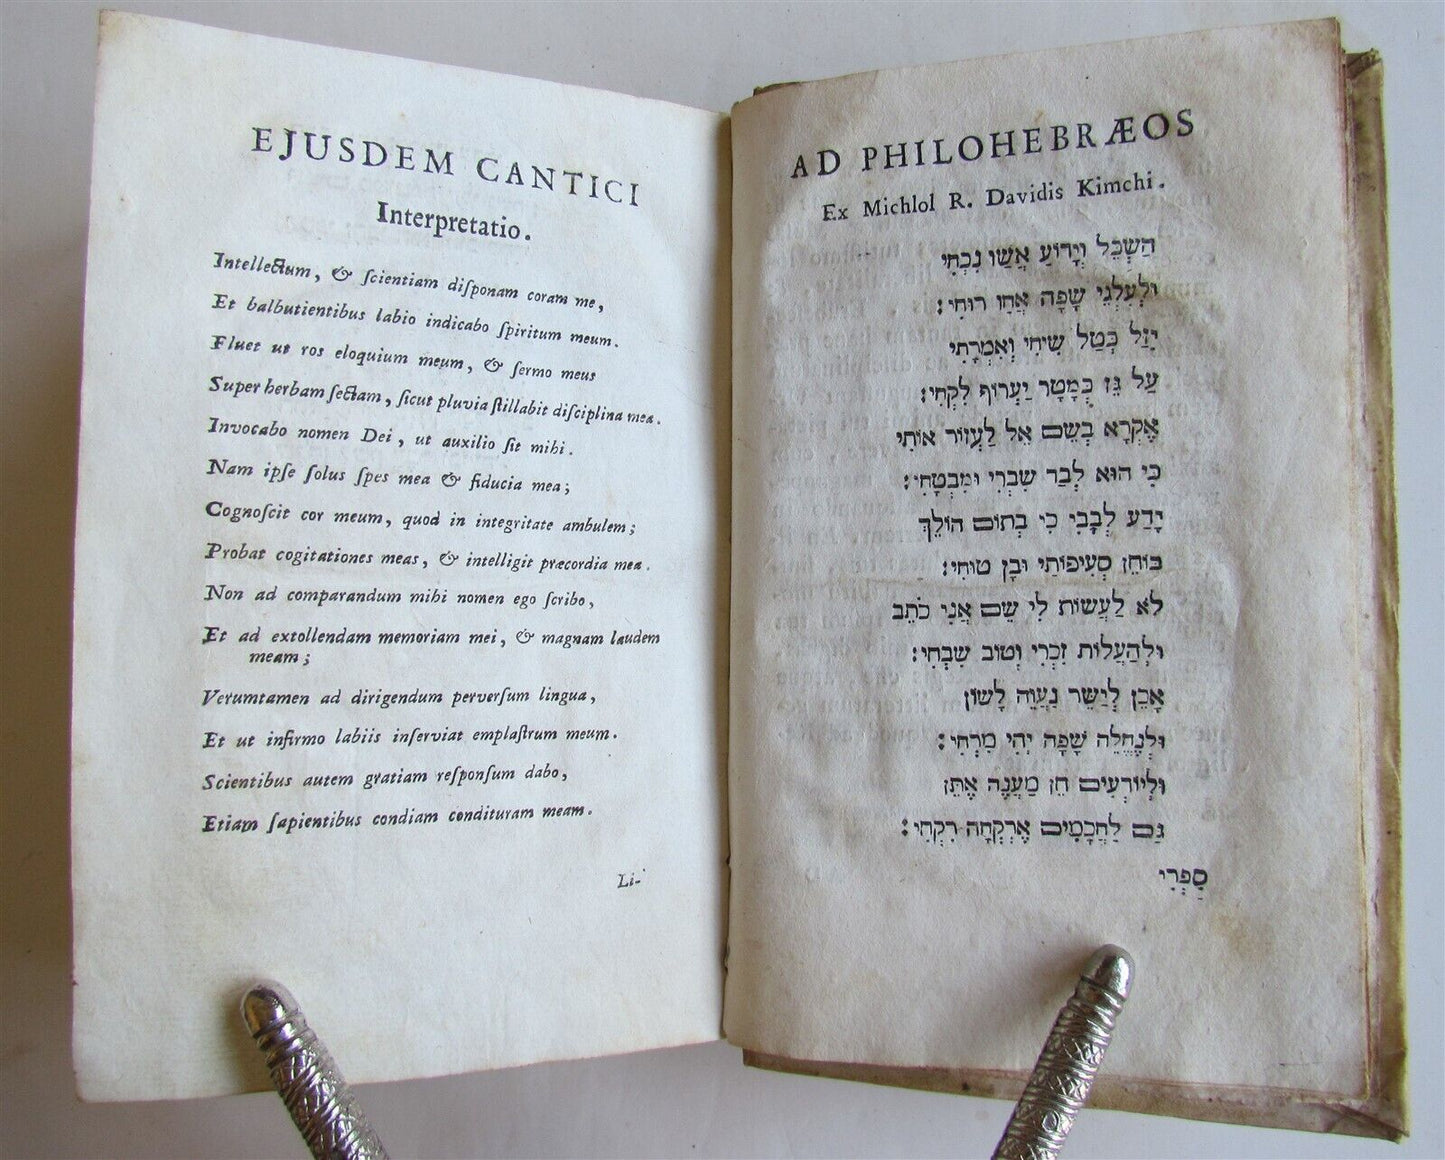 EJUSDEM CANTICI
Interpretatio.
Intellectum, & ſcientiam diſponam coram me,
Et balbutientibus labio indicabo ſpiritum meum.
Fluet ut ros eloquium meum, & ſermo meus
Super herbam ſectam, ſicut pluvia ſtillabit diſciplina mea.
Invocabo nomen Dei, ut auxilio ſit mihi.
Nam ipſe ſolus ſpes mea & fiducia mea;
Cognoſcit cor meum, quod in integritate ambulem;
Probat cogitationes meas, & intelligit præcordia mea.
Non ad comparandum mihi nomen ego ſcribo,
Et ad extollendam memoriam mei, & magnam laudem
meam;
Verumtamen ad dirigendum perverſum lingua,
Et ut infirmo labiis inſerviat emplaſtrum meum.
Scientibus autem gratiam reſponſum dabo,
Etiam ſapientibus condiam condituram meam.
Li-
AD PHILOHEBRÆOS
Ex Michlol R. Davidis Kimchi.
הַשְׂכֵּל וְיָדוֹעַ אֲשַׁו נִכְחִי
וּלְעִלְגֵי שָׂפָה אֲחַו רוּחִי:
יִזַּל כְּטַל שִׂיחִי וְאִמְרָתִי
עַל גֵּן כְּמָטָר יַעְרוֹף לִקְחִי:
אֶקְרָא בְשֵׁם אֵל לַעְזוֹר אוֹתִי
כִּי הוּא לְבַד שִׂבְרִי וּמִבְטָחִי:
יָדַע לְבָבִי כִּי בְתוֹם הוֹלֵךְ
בּוֹחֵן סְעִיפּוֹתַי וּבָן טוּחִי:
לֹא לַעֲשׂוֹת לִי שֵׁם אֲנִי כֹתֵב
וּלְהַעֲלוֹת זִכְרִי וְטוּב שִׁבְחִי:
אָכֵן לְיַשֵּׁר נַעֲוֵה לָשׁוֹן
וּלְנֶחֱלֵה שָׂפָה יְהִי מִרְחִי:
וּלְיוֹדְעִים חֵן מַעֲנֶה אֶתֵּן
גַּם לַחֲכָמִים אֶרְקְחָה רִקְחִי:
סִפְרִי